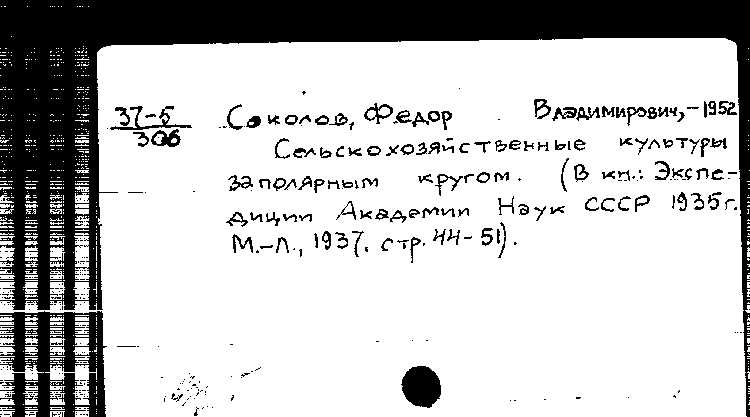 37-5 Соколов, Федор Владимирович, -1952
306
Сельскохозяйственные культуры
заполярным кругом. (В кн.: Экспе-
диции Академии Наук СССР 1935г.
М.-Л., 1937. стр. 44-51).